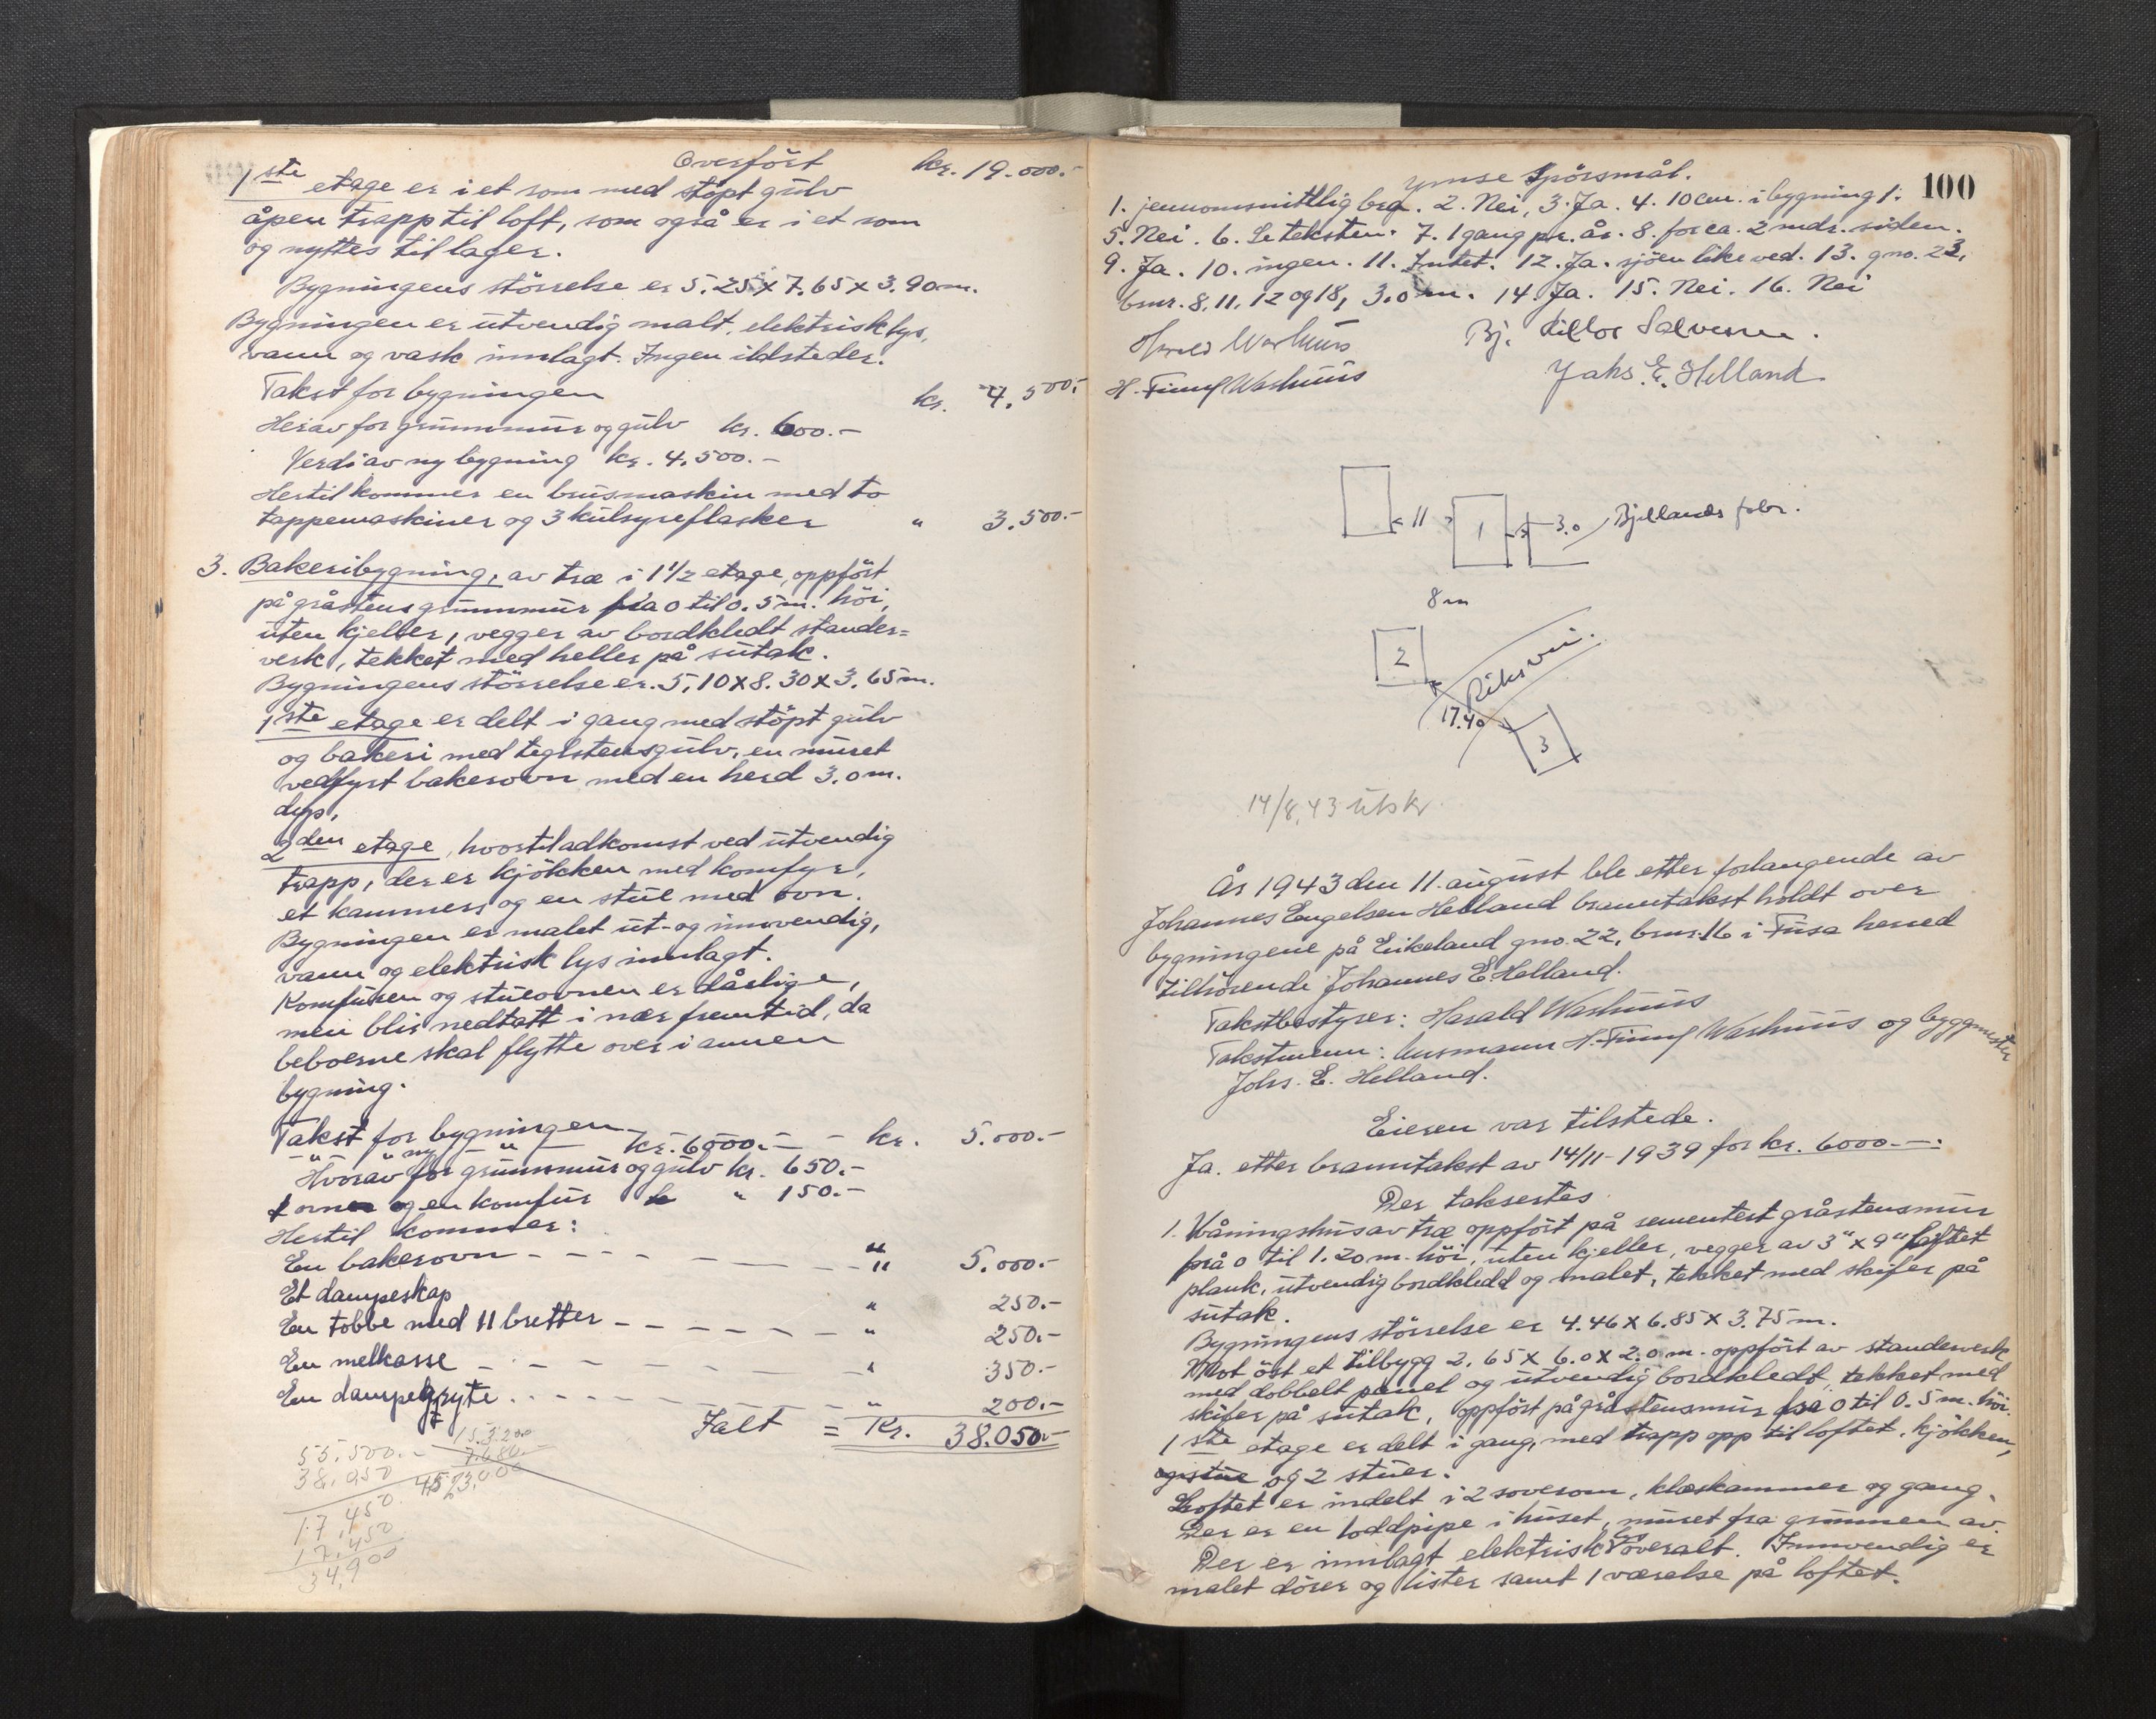 Overført kr. 19.000.-
1ste etage er i et rom med støpt gulv
åpen trapp til loft, som også er i et rom
og nyttes til lager.
Bygningens størrelse er 5.25 x 7.65 x 3.90 m.
Bygningen er utvendig malt, elektrisk lys,
vann og vask innlagt. Ingen ildsteder.
Takst for bygningen kr. 4.500.-
Herav for grunnmur og gulv kr. 600.-
Verdi av ny bygning kr. 4.500.-
Hertil kommer en brusmaskin med to
tappemaskiner og 3 kulsyreflasker " 3.500.-
3. Bakeribygning, av træ i 1 1/2 etage, oppført
på gråstens grunnmur fra 0 til 0.5 m. høi,
uten kjeller, vegger av bordkledt stander=
verk, tekket med heller på sutak.
Bygningens størrelse er 5,10 x 8.30 x 3.65 m.
1ste etage er delt i gang med støpt gulv
og bakeri med teglstensgulv, en muret
vedfyrt bakerovn med en herd 3.0 m.
dyp,
2den etage, hvortil adkomst ved utvendig
trapp, der er kjøkken med komfyr,
et kammers og en stue med ovn.
Bygningen er malet ut- og innvendig,
vann og elektrisk lys innlagt.
Komfuren og stueovnen er dårlige,
men blir nedtatt i nær fremtid, da
beboerne skal flytte over i annen
bygning.
Takst for bygningen - kr. 5.000.-
-"- "ny -"- kr. 6000.-
Hvorav for grunnmur og gulv kr. 650.-
ovner og en komfur " 150.-
Hertil kommer:
En bakerovn - - - - - " 5.000.-
Et dampeskap " 250.-
En tobbe med 11 bretter - - - - - " 250.-
En melkasse - - - - - " 350.-
En dampegryte - - - - - " 200.-
Ialt = Kr. 38.050.-
55.500.-
38.050
17,450
17,450
34,900
15.3.200
7.680.-
100
Ymse Spørsmål.
1. jennomsnittlig bra. 2. Nei, 3. Ja. 4. 10 cm. i bygning 1.
5. Nei. 6. Se teksten. 7. 1 gang pr. år. 8. for ca. 2 mdr. siden.
9. Ja. 10. ingen. 11. Intet. 12. Ja. sjøen like ved. 13. gno. 23,
bnr. 8, 11, 12 og 18, 3.0 m. 14. Ja. 15. Nei. 16. Nei
Harald Warhuus Bj. Salvesen.
H. Warhuus Johs. E. Helland
11 1 3.0 Bjellands fabr.
8 m
2 Riksvei.
17.40
3
14/8.43 utskr.
År 1943 den 11. august ble etter forlangende av
Johannes Engelsen Helland branntakst holdt over
bygningene på Eikeland gno. 22, bnr. 16 i Fusa herred
tilhørende Johannes E. Helland.
Takstbestyrer: Harald Warhuus
Takstmenn: lensmann H. Warhuus og byggmester
Johs. E. Helland.
Eieren var tilstede.
Ja. etter branntakst av 14/11-1939 for kr. 6000.-
Der taksertes
1. Våningshus av træ oppført på sementert gråstensmur
frå 0 til 1.20 m. høi, uten kjeller, vegger av 3" x 9" laftet
plank, utvendig bordkledd og malet, tekket med skifer på
sutak.
Bygningens størrelse er 4.46 x 6.85 x 3.75 m.
Mot øst et tilbygg 2.65 x 6.0 x 2.0 m. oppført av standerverk
med dobbelt panel og utvendig bordkledt, tekket med
skifer på sutak, oppført på gråstensmur fra 0 til 0.5 m. høi.
1ste etage er delt i gang, med trapp opp til loftet, kjøkken,
og 2 stuer.
Loftet er indelt i 2 soverom, klæskammer og gang.
Der er en loddpipe i huset, muret fra grunnen av.
Der er innlagt elektrisk lys overalt. Innvendig er
malet dører og lister samt 1 værelse på loftet.